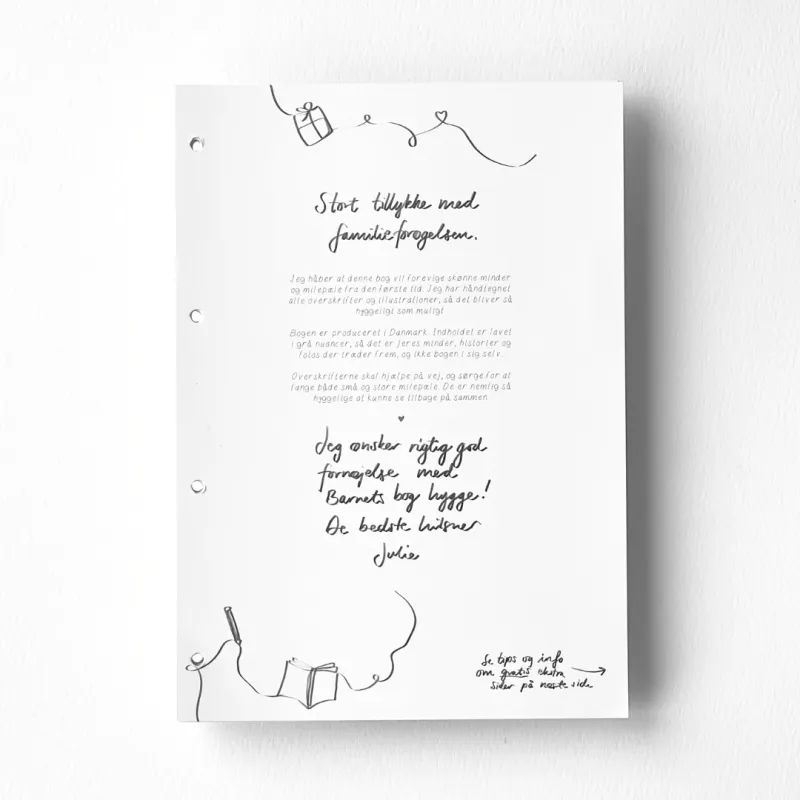 Stort tillykke med
familieforøgelsen.
Jeg håber at denne bog vil forevige skønne minder
og milepæle fra den første tid. Jeg har håndtegnet
alle overskrifter og illustrationer, så det bliver så
hyggeligt som muligt
Bogen er produceret i Danmark. Indholdet er lavet
i grå nuancer, så det er jeres minder, historier og
fotos der træder frem, og ikke bogen i sig selv.
Overskrifterne skal hjælpe på vej, og sørge for at
fange både små og store milepæle. De er nemlig så
hyggelige at kunne se tilbage på sammen
Jeg ønsker rigtig god
fornøjelse med
Barnets bog hygge!
De bedste hilsner
Julie
Se tips og info
om gratis ekstra
sider på næste side